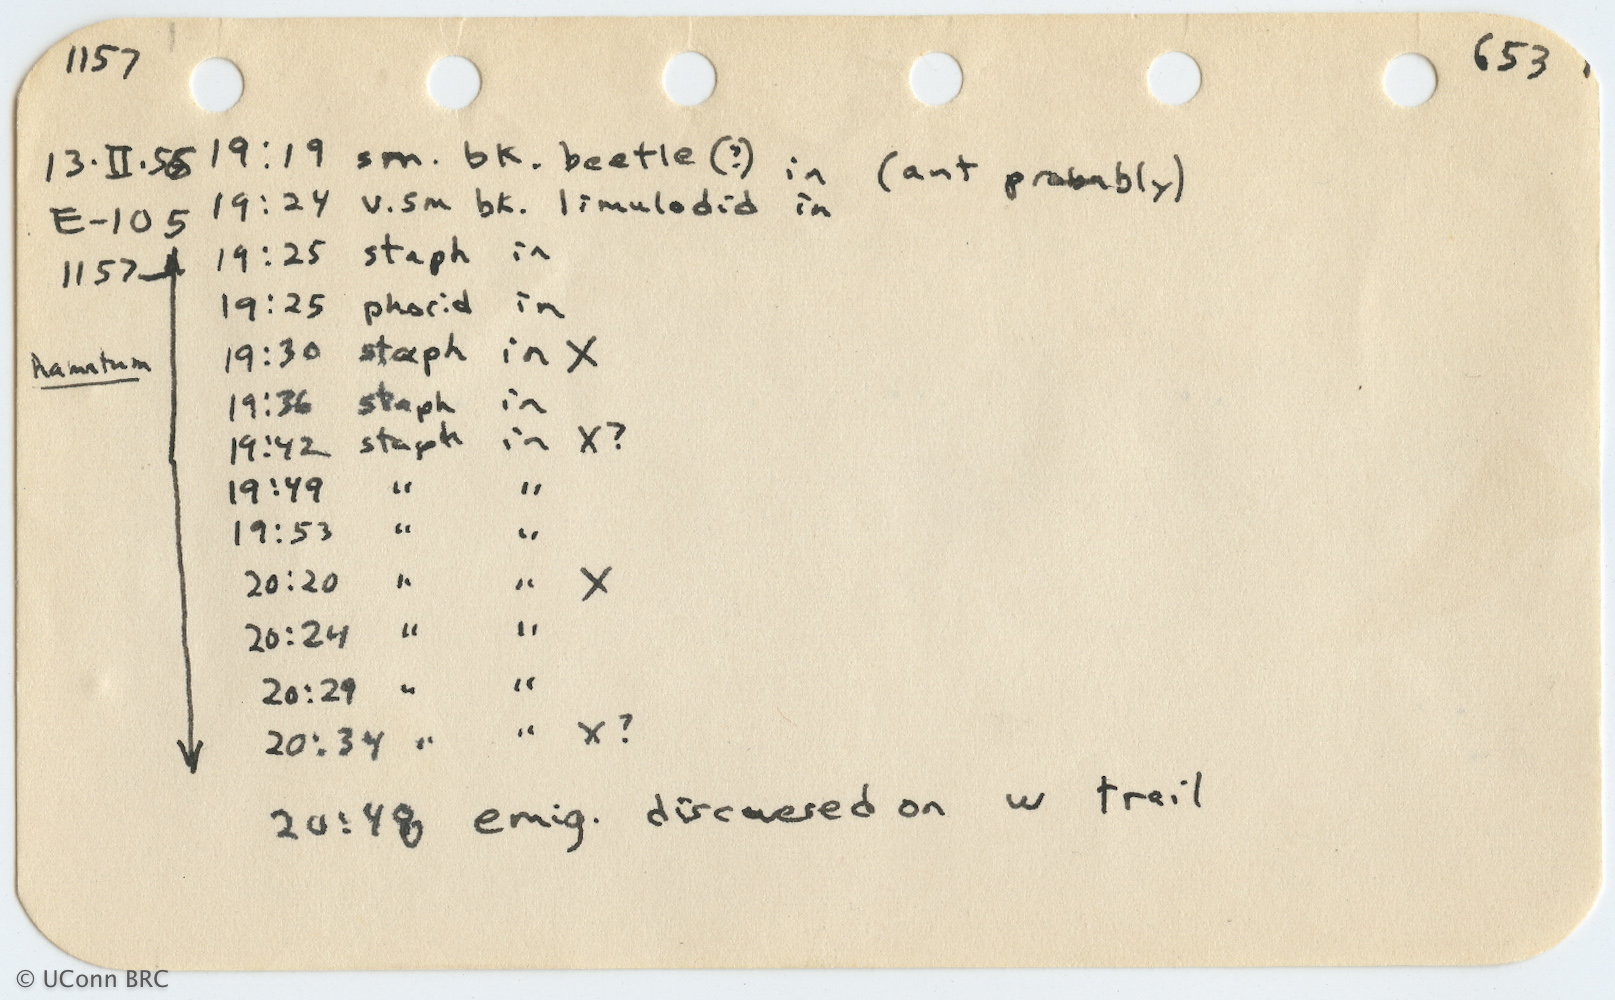 1157 653
13·II·56 19:19 sm. bk. beetle (?) in (ant probably)
E-105 19:24 v.sm bk. limulodid in
1157 19:25 staph in
19:25 phorid in
19:30 staph in X
hamatum
19:36 staph in
19:42 staph in X?
19:49 " "
19:53 " "
20:20 " " X
20:24 " "
20:29 " "
20:34 " " X?
20:48 emig. discovered on w trail
© UConn BRC